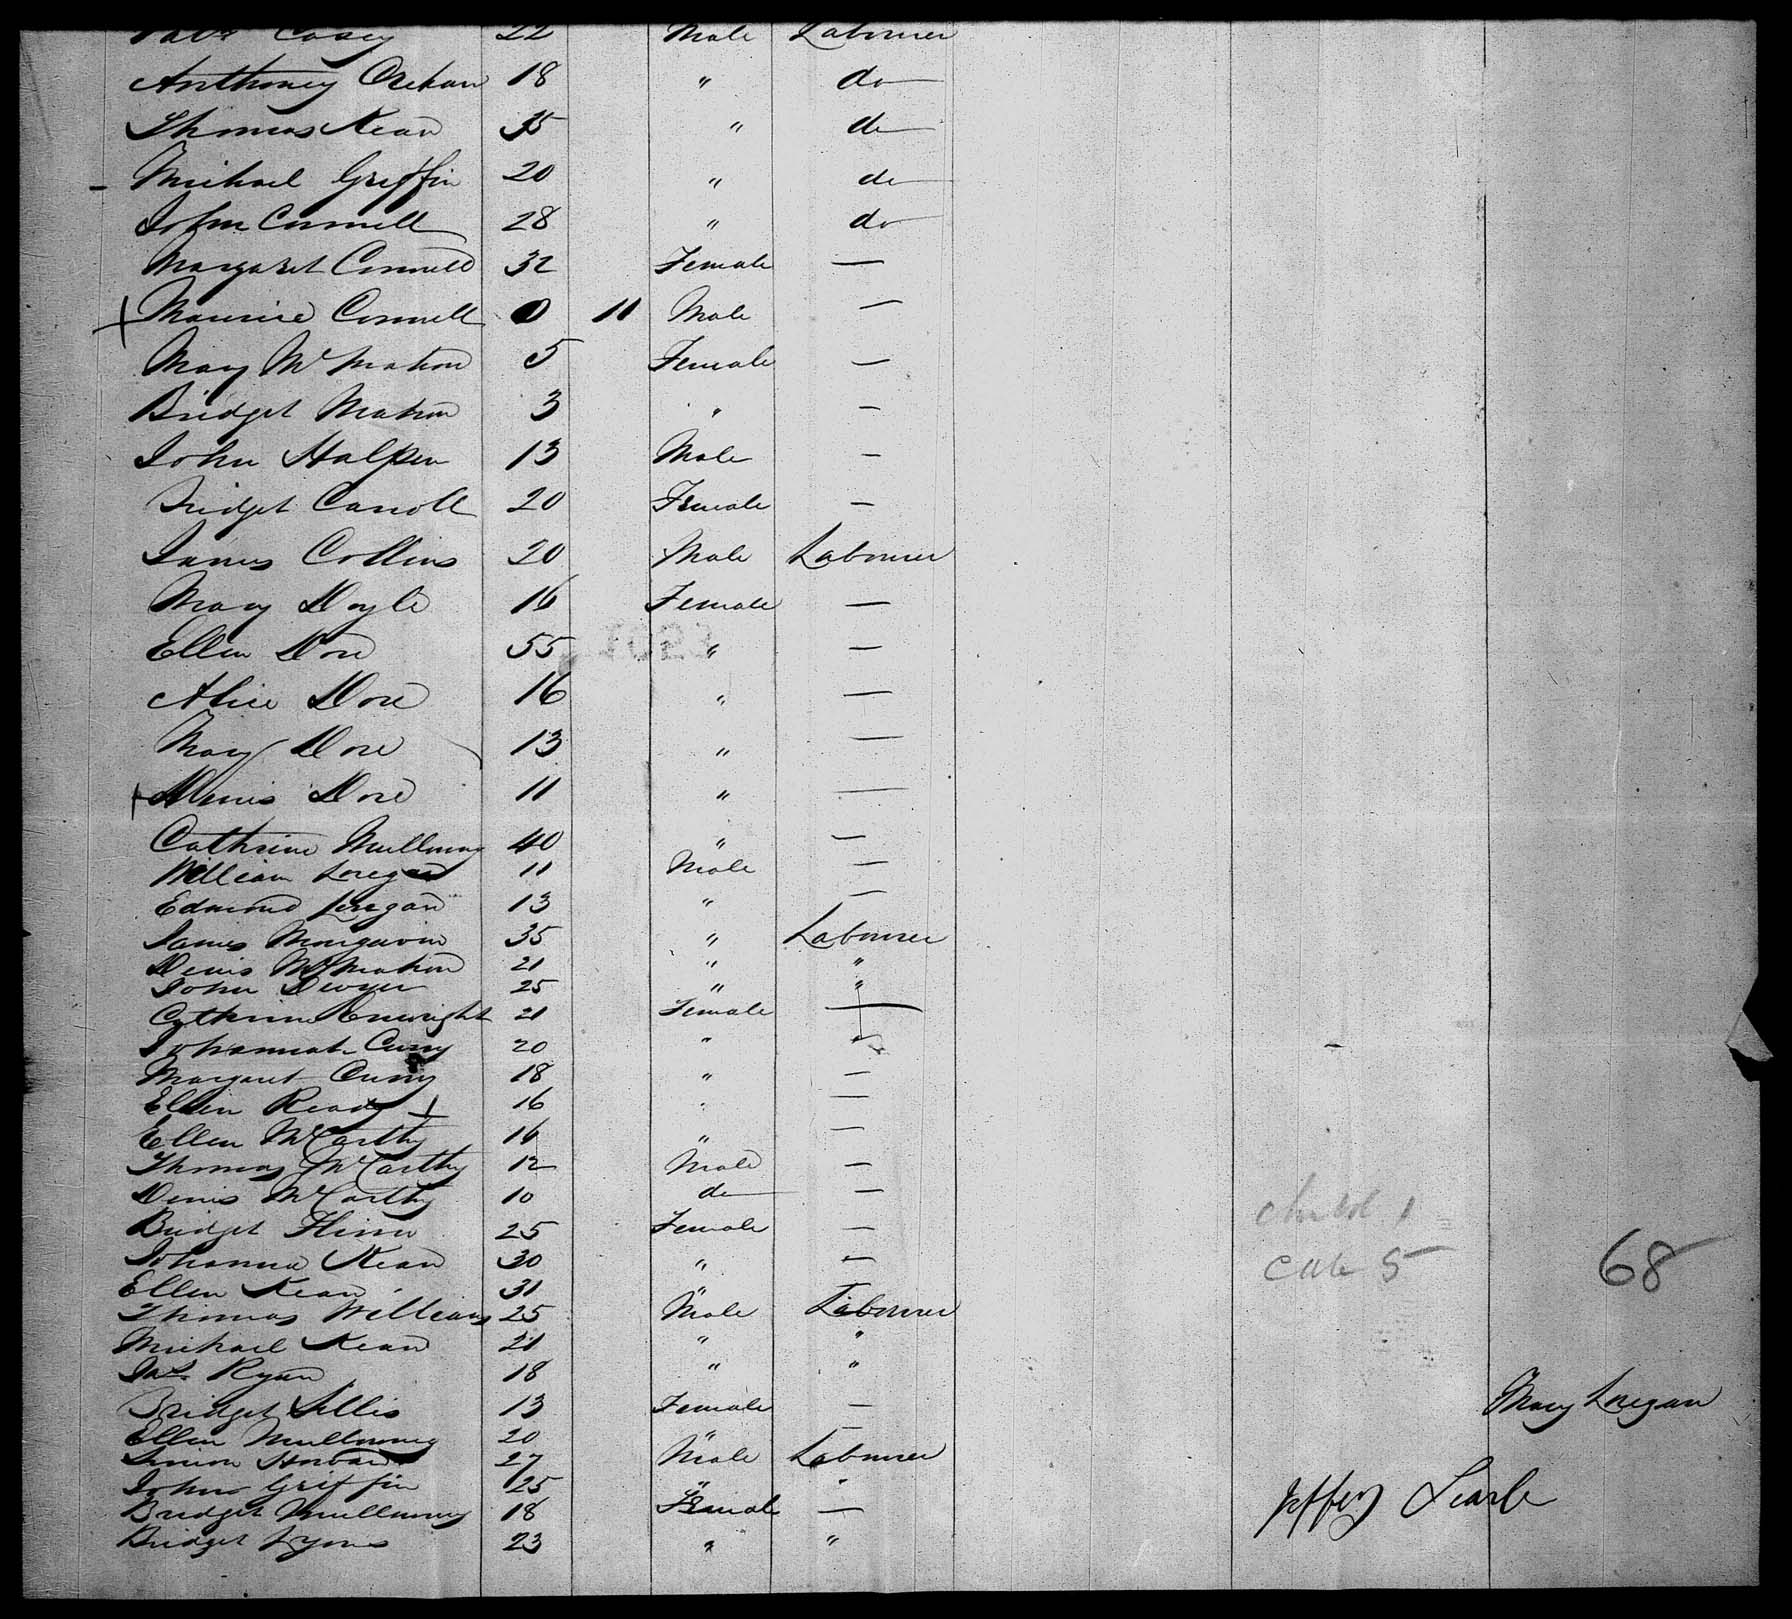 Patk Casey 22 Male Labourer
Anthoney Crehan 18 " do
Thomas Kean 35 " do
Michael Griffin 20 " do
John Connell 28 " do
Margaret Connell 32 Female —
+ Maurice Connell 0 11 Male —
Mary McMahon 5 Female —
Bridget Mahon 3 " —
John Halpen 13 Male —
Bridget Carroll 20 Female —
James Collins 20 Male Labourer
Mary Doyle 16 Female —
Ellen Dore 55 " —
Alice Dore 16 " —
Mary Dore 13 " —
+ Denis Dore 11 " —
Cathrine Mullowny 40 " —
William Loregan 11 Male —
Edmond Loregan 13 " —
James Mongavin 35 " Labourer
Denis McMahon 21 " "
John Dwyer 25 " "
Cathrine Enwright 21 Female —
Johannah Curry 20 " "
Margaret Curry 18 " —
Ellen Ready + 16 " —
Ellen McCarthy 16 " —
Thomas McCarthy 12 Male —
Denis McCarthy 10 do —
Bridget Flinn 25 Female —
Johanna Kean 30 " —
Ellen Kean 31 "
Thomas Williams 25 Male Labourer
Michael Kean 21 " "
Jas Ryan 18 " "
Bridget Lillis 13 Female —
Ellen Mullowney 20 " —
Simon 27 Male Labourer
John Griffin 25 " "
Bridget Mullowney 18 Female —
Bridget Lyons 23 " "
5
68
Mary Loregan
Jeffery Searle